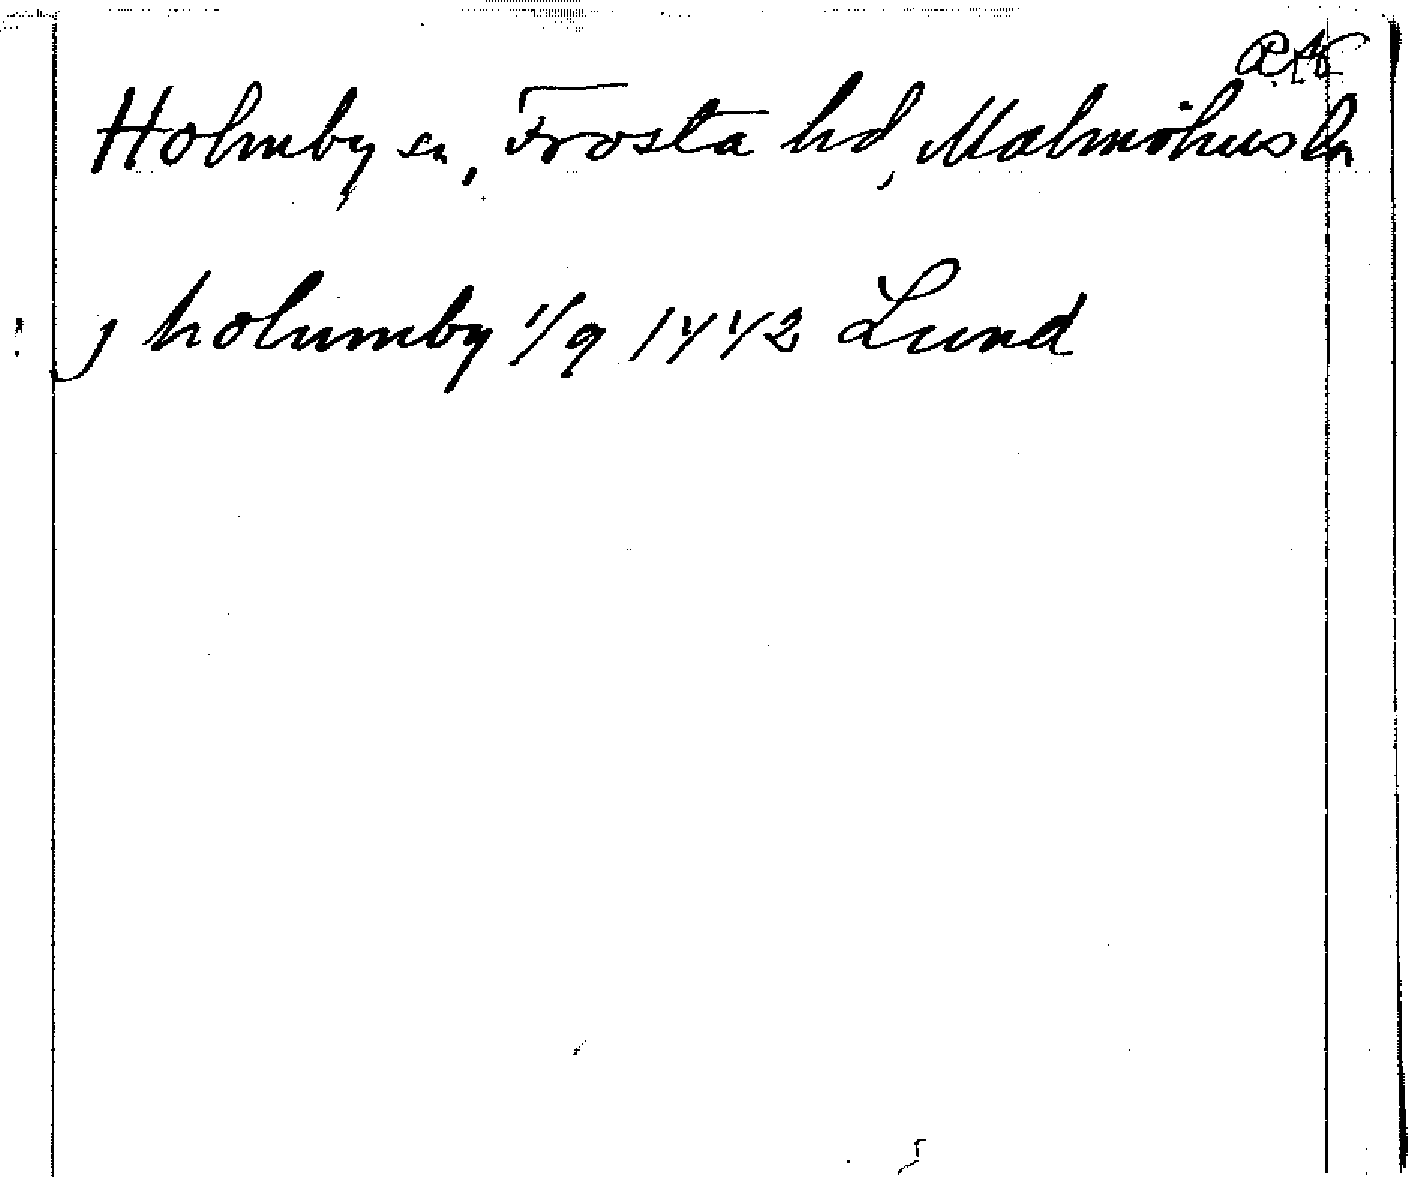 RAP
Holmby sn, Frosta hd, Malmöhus ln
j holmby 1/9 1442 Lund